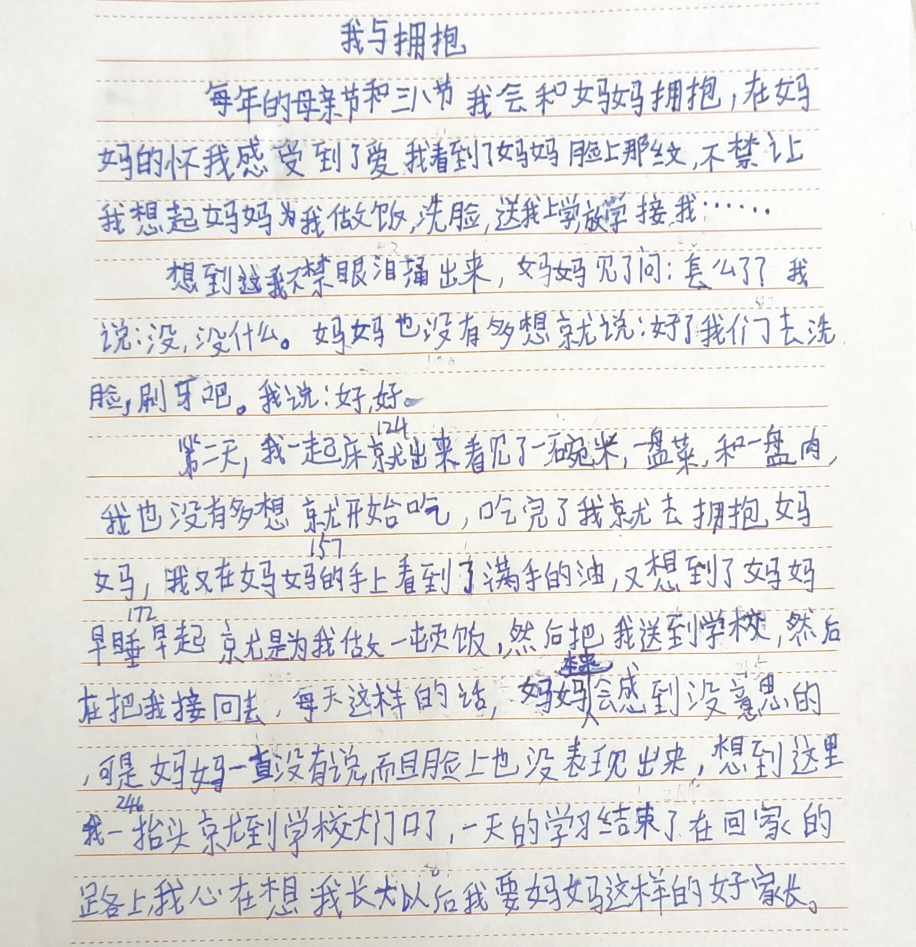 我与拥抱
每年的母亲节和三八节我会和妈妈拥抱,在妈
妈的怀我感受到了爱,我看到了妈妈脸上那纹,不禁让
我想起妈妈为我做饭,洗脸,送我上学,放学接我……
想到这我不禁眼泪捅出来,妈妈见了问:怎么了?我
说:没,没什么。妈妈也没有多想就说:好了我们去洗
脸,刷牙吧。我说:好,好。
124
第二天,我一起床就出来看见了一碗米,一盘菜,和一盘肉,
我也没有多想就开始吃,吃完了我就去拥抱妈
157
妈,我又在妈妈的手上看到了满手的油,又想到了妈妈
172
早睡早起就是为我做一顿饭,然后把我送到学校,然后
在把我接回去,每天这样的话,妈妈会感到没意思的
,可是妈妈一直没有说,而且脸上也没表现出来,想到这里
246
我一抬头就到学校大门口了,一天的学习结束了在回家的
路上,我心在想我长大以后我要妈妈这样的好家长。